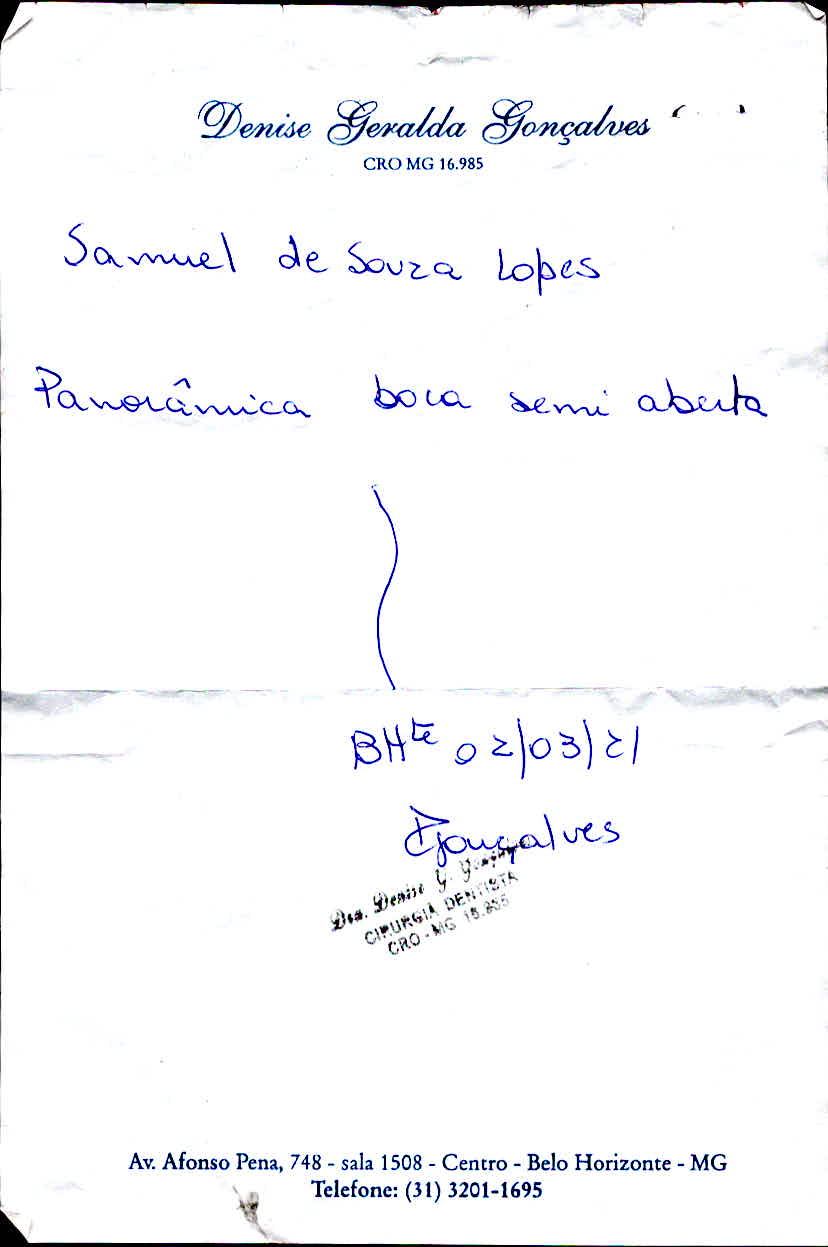 Denise Geralda Gonçalves
CRO MG 16.985
Samuel de Souza Lopes
Panorâmica boca semi aberta
BHte 02/03/21
Gonçalves
Dra. Denise G. Gonçalves
CIRURGIÃ DENTISTA
CRO - MG
Av. Afonso Pena, 748 - sala 1508 - Centro - Belo Horizonte - MG
Telefone: (31) 3201-1695